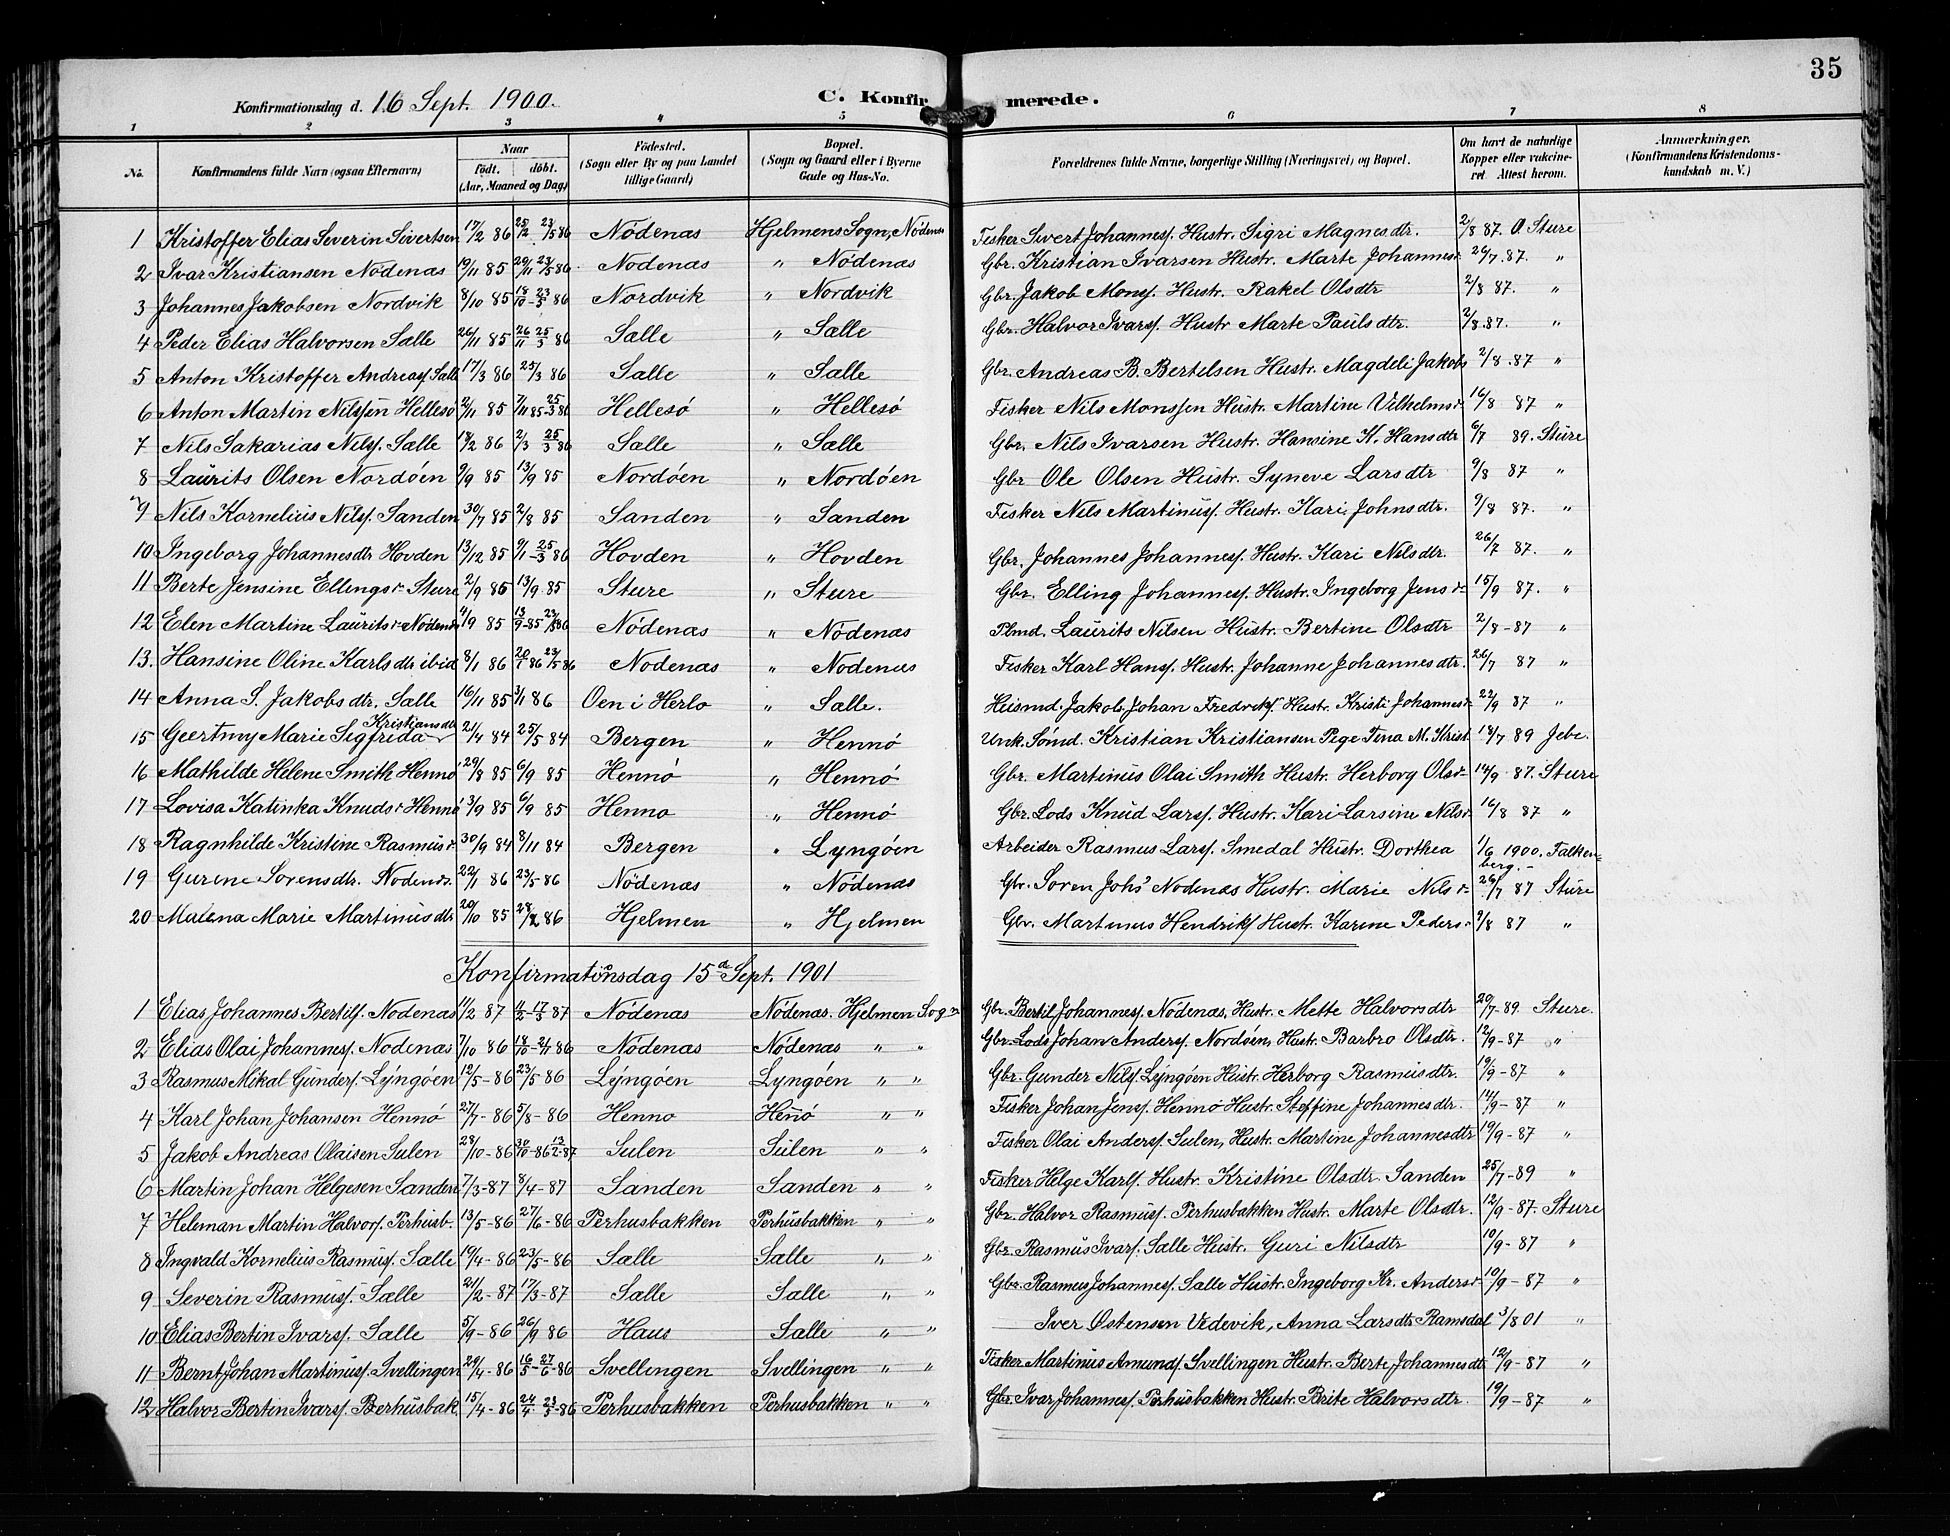 35
Konfirmationsdag d. 16 Sept. 1900. C. Konfirmerede.
1 2 3 4 5 6 7 8
No. Konfirmandens fulde Navn (ogsaa Efternavn) Naar født. døbt. (Aar, Maaned og Dag) Fødested. (Sogn eller By og paa Landet tillige Gaard) Bopæl. (Sogn og Gaard eller i Byerne Gade og Hus-No. Forældrenes fulde Navne, borgerlige Stilling (Næringsvei) og Bopæl. Om havt de naturlige Kopper eller vakcineret. Attest herom. Anmærkninger. (Konfirmandens Kristendomskundskab m. V.)
1 Kristoffer Elias Severin Sivertsen 17/2 86 25/2 23/5 86 Nödenas Hjelmens Sogn, Nödenas Fisker Sivert Johannesf. Hustr. Sigri Magnesdtr. 2/8 87. O Sture
2 Ivar Kristiansen Nödenas 19/11 85 29/11 23/5 86. Nodenas " Nödenas Gbr. Kristian Ivarsen Hustr. Marte Johannesdr 26/7. 87. "
3 Johannes Jakobsen Nordvik 8/10 85 18/10 - 23/3 86 Nordvik " Nordvik Gbr. Jakob Monsf. Hustr. Rakel Olsdtr 2/8 87. "
4 Peder Elias Halvorsen Sælle 26/11 85 26/11 25/3 86 Sælle " Sælle Gbr. Halvor Ivarsf. Hustr Marte Paulsdtr. 2/8.87. "
5 Anton Kristoffer Andreasf Sælle 17/3 86 25/3 86 Sælle " Sælle Gbr. Andreas B. Bertelsen Hustr. Magdeli Jakobs 2/8.87 "
6 Anton Martin Nilssen Hellesö 2/11 85 7/11 85-25/3 86 Hellesö " Hellesö Fisker Nils Monssen Hustr. Martine Vilhelmsdr 16/8 87 "
7 Nils Sakarias Nilsf. Sælle 18/2 86 2/3 25/3 86 Sælle " Sælle Gbr. Nils Ivarsen Hustr. Hansine K. Hansdtr 6/7 89. Sture
8 Laurits Olsen Nordöen 9/9 85 13/9 85 Nordöen " Nordöen Gbr Ole Olsen Hustr. Syneve Larsdtr 9/8 87 "
9 Nils Kornelius Nilsf. Sanden 30/7 85 2/8 85 Sanden " Sanden Fisker Nils Martinusf. Hustr. Kari Johnsdtr. 9/8 87. "
10 Ingeborg Johannesdtr Hovden 13/12 85 9/1-25/3 86 Hovden " Hovden Gbr. Johannes Johannesf. Hustr. Kari Nilsdtr. 26/7 87. "
11 Berte Jensine Ellingsdr Sture 2/9 85 13/9 85 Sture " Sture Gbr. Elling Johannesf. Hustr. Ingeborg Jensdr 15/9 87. "
12 Elen Martine Lauritsdr Nödenas 4/9 85 13/9-85 23/5 86 Nödenas " Nödenas Plmd. Laurits Nilsen Hustr. Bertine Olsdtr 2/8-87 "
13. Hansine Oline Karlsdtr ibid 8/1 86 20/1 86 23/5 86 Nodenas " Nodenas Fisker Karl Hansf. Hustr. Johanne Johannesdtr. 26/7 87 "
14 Anna S. Jakobsdtr. Sælle 16/11 85 3/1 86 Oen i Herlo " Sælle. Husmd. Jakob Johan Fredriksf Hustr. Kristi Johannesdr 22/9 87 "
15 Geertmy Marie Sigfrida Kristiansdtr 21/4 84 25/5 84 Bergen " Hennö Unk. Sömd. Kristian Kristiansen Pige Tina M. Krist. 18/7 89 Jebe.
16 Mathilde Helene Smith Hennö 29/8 85 6/9 85 Hennö " Hennö Gbr. Martinus Olai Smith Hustr. Herborg Olsdr 14/9 87. Sture
17 Lovisa Katinka Knudsdr Hennö 3/9 85 6/9 85 Henno " Hennö Gbr. Lods Knud Larsf. Hustr. Kari Larsine Nilsdr 16/8 87 "
18 Ragnhilde Kristine Rasmusdr 30/9 84 8/11 84 Bergen " Lyngöen Arbeider Rasmus Larsf. Smedal Hustr. Dorthea 1/6 1900. Falkenberg.
19 Gurine Sorensdtr. Nodenæs. 22/1 86 23/5-86 Nödenas " Nödenas Gbr. Soren Johs' Nodenas Hustr. Marie Nilsdr 26/7 87 Sture
20 Malena Marie Martinusdtr 20/10 85 28/2 86 Hjelmen " Hjelmen Gbr. Martinus Hendriksf Hustr. Karine Pedersdr 9/8 87 "
Konfirmationsdag 15d Sept. 1901
1 Elias Johannes Bertilsf. Nodenas 11/2 87 14/2-17/3 87 Nödenas Nödenas. Hjelmen Sogn Gbr. Bertil Johannesf. Nödenas, Hustr. Mette Halvorsdtr 20/7-89. Sture.
2 Elias Olai Johannesf. Nodenas 7/10 86 18/10-21/11 86 Nödenas Nödenas " " Gbr. Lods Johan Andersf. Nordöen, Hustr. Barbro Olsdtr. 12/9-87 "
3 Rasmus Mikal Gundersf. Lyngöen 12/5-86 23/5-86 Lyngöen Lyngöen " " Gbr. Gunder Nilsf Lyngöen Hustr. Herborg Rasmusdtr. 19/9-87 "
4 Karl Johan Johansen Hennö 27/7-86 5/8-86 Henno Henö " " Fisker Johan Jensf. Hennö Hustr. Steffine Johannesdtr. 14/9-87 "
5 Jakob Andreas Olaisen Sulen 28/10-86 30/10-86 13/2-87 Sulen Sulen " " Fisker Olai Andersf. Sulen, Hustr. Martine Johannesdtr 19/9-87 "
6 Martin Johan Helgesen Sanden 7/3-87 8/4-87 Sanden Sanden " " Fisker Helge Karlsf. Hustr. Kristine Olsdtr. Sanden 25/7-89 "
7 Helman Martin Halvorsf. Perhusb. 13/5-86 27/6-86 Perhusbakken Perhusbakken " " Gbr. Halvor Rasmusf. Perhusbakken Hustr. Marte Olsdtr. 12/9-87. Sture
8 Ingvald Kornelius Rasmusf. Sælle 19/4-86 23/5-86 Sælle Sælle " " Gbr. Rasmus Ivarsf. Sælle Hustr. Guri Nilsdtr 10/9-87 "
9 Severin Rasmusf. Sælle 21/2-87 17/3-87 Sælle Sælle " " Gbr. Rasmus Johannesf. Sælle Hustr. Ingeborg Kr. Andersdr 10/9-87 "
10 Elias Bertin Ivarsf. Sælle 5/9-86 26/9 86 Haus Sælle " " Iver Østensen Videvik, Anna Larsdtr Ramsdal 3/8 01 "
11 Bernt Johan Martinusf. Svellingen 29/4-86 16/5-27/6-86 Svellingen Svellingen " " Fisker Martinus Amundsf. Svellingen Hustr. Berte Johannesdtr 12/9-87 "
12 Halvor Bertin Ivarsf. Berhusbak. 15/4-86 24/4-23/5-86 Perhusbakken Perhusbakken " " Gbr. Ivar Johannesf. Perhusbakken Hustr. Brite Halvorsdtr. 19/9-87 "